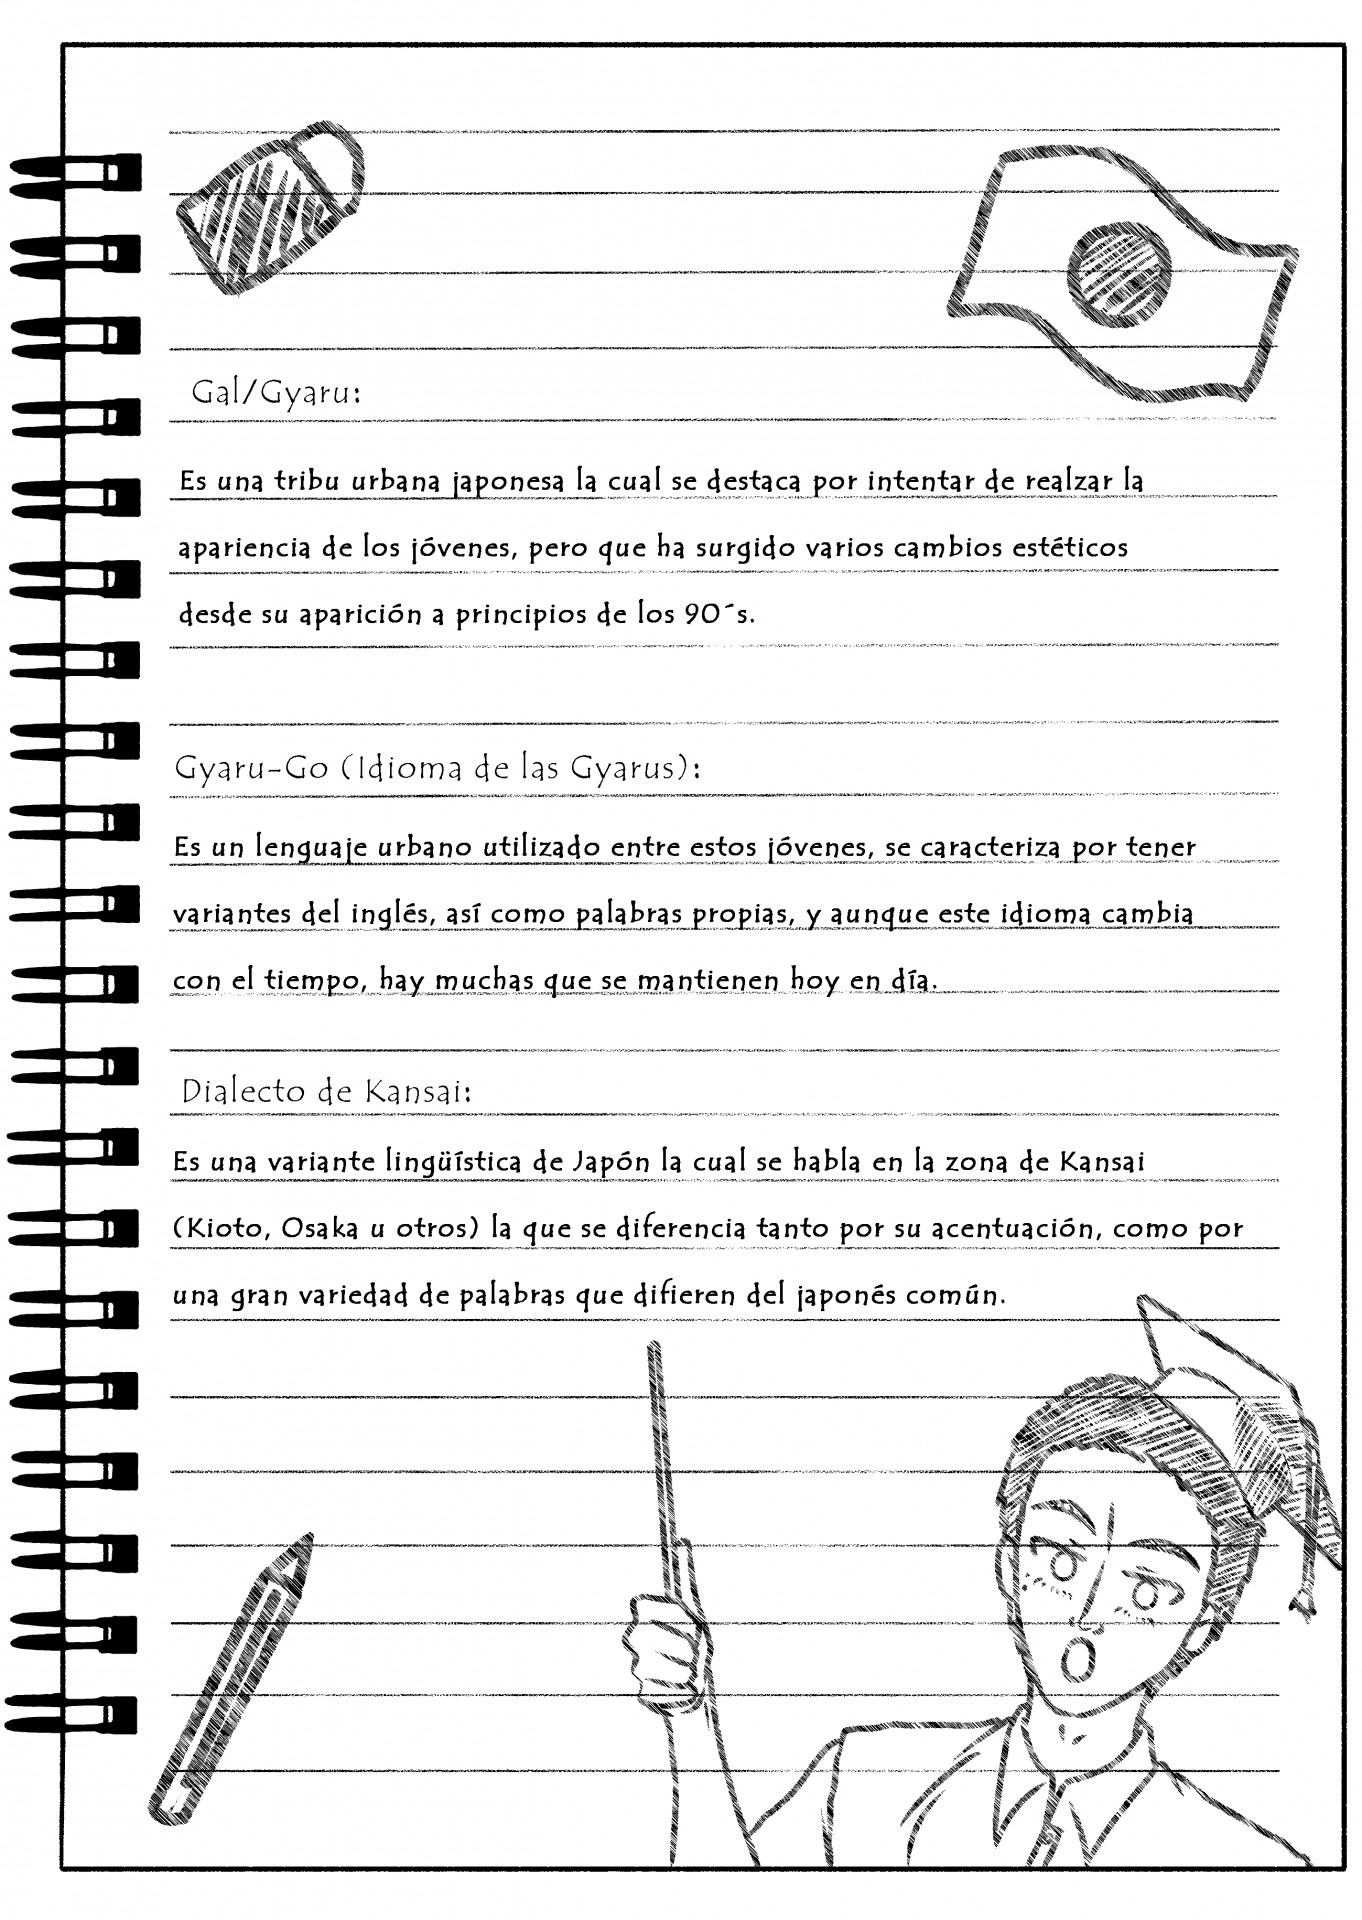 Gal/Gyaru:
Es una tribu urbana japonesa la cual se destaca por intentar de realzar la
apariencia de los jóvenes, pero que ha surgido varios cambios estéticos
desde su aparición a principios de los 90´s.
Gyaru-Go (Idioma de las Gyarus):
Es un lenguaje urbano utilizado entre estos jóvenes, se caracteriza por tener
variantes del inglés, así como palabras propias, y aunque este idioma cambia
con el tiempo, hay muchas que se mantienen hoy en día.
Dialecto de Kansai:
Es una variante lingüística de Japón la cual se habla en la zona de Kansai
(Kioto, Osaka u otros) la que se diferencia tanto por su acentuación, como por
una gran variedad de palabras que difieren del japonés común.